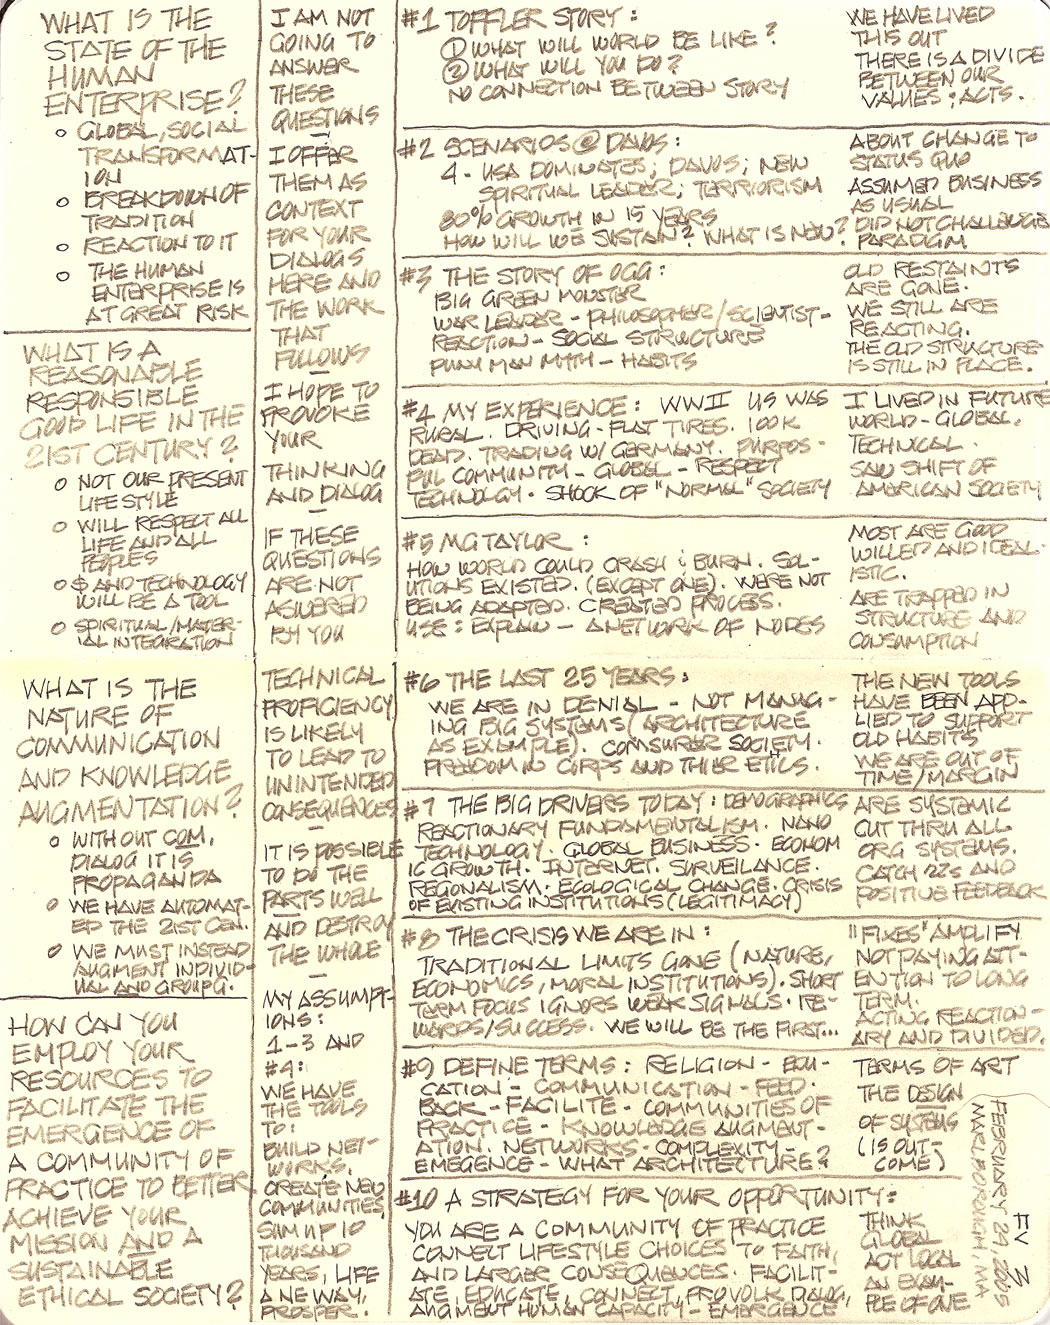 WHAT IS THE
STATE OF THE
HUMAN
ENTERPRISE?
o GLOBAL, SOCIAL
TRANSFORMAT-
ION
o BREAKDOWN OF
TRADITION
o REACTION TO IT
o THE HUMAN
ENTERPRISE IS
AT GREAT RISK
WHAT IS A
REASONABLE
RESPONSIBLE
GOOD LIFE IN THE
21ST CENTURY?
o NOT OUR PRESENT
LIFE STYLE
o WILL RESPECT ALL
LIFE AND ALL
PEOPLES
o $ AND TECHNOLOGY
WILL BE A TOOL
o SPIRITUAL/MATER-
IAL INTEGRATION
WHAT IS THE
NATURE OF
COMMUNICATION
AND KNOWLEDGE
AUGMENTATION?
o WITHOUT COM,
DIALOG IT IS
PROPAGANDA
o WE HAVE AUTOMAT-
ED THE 21ST CEN.
o WE MUST INSTEAD
AUGMENT INDIVID-
UAL AND GROUP G.
HOW CAN YOU
EMPLOY YOUR
RESOURCES TO
FACILITATE THE
EMERGENCE OF
A COMMUNITY OF
PRACTICE TO BETTER
ACHIEVE YOUR
MISSION AND A
SUSTAINABLE
ETHICAL SOCIETY?
I AM NOT
GOING TO
ANSWER
THESE
QUESTIONS
—
I OFFER
THEM AS
CONTEXT
FOR YOUR
DIALOGS
HERE AND
THE WORK
THAT
FOLLOWS
—
I HOPE TO
PROVOKE
YOUR
THINKING
AND DIALOG
—
IF THESE
QUESTIONS
ARE NOT
ASWERED
BY YOU
TECHNICAL
PROFICIENCY
IS LIKELY
TO LEAD TO
UNINTENDED
CONSEQUENCES
—
IT IS POSSIBLE
TO DO THE
PARTS WELL
AND DESTROY
THE WHOLE
—
MY ASSUMPT-
IONS:
1-3 AND
#4:
WE HAVE
THE TOOLS
TO:
BUILD NET-
WORKS,
CREATE NEW
COMMUNITIES,
SUM UP 10
THOUSAND
YEARS, LIFE
A NEW WAY,
PROSPER.
#1 TOFFLER STORY:
① WHAT WILL WORLD BE LIKE?
② WHAT WILL YOU DO?
NO CONNECTION BETWEEN STORY
WE HAVE LIVED
THIS OUT
THERE IS A DIVIDE
BETWEEN OUR
VALUES & ACTS.
#2 SCENARIOS @ DAVOS:
4 - USA DOMINATES; DAVOS; NEW
SPIRITUAL LEADER; TERRIORISM
80% GROWTH IN 15 YEARS
HOW WILL WE SUSTAIN? WHAT IS NEW?
ABOUT CHANGE TO
STATUS QUO
ASSUMED BUSINESS
AS USUAL
DID NOT CHALLENGE
PARADIGM
#3 THE STORY OF OGG:
BIG GREEN MONSTER
WAR LEADER - PHILOSOPHER/SCIENTIST-
REACTION - SOCIAL STRUCTURE
PUNY MAN MYTH - HABITS
OLD RESTAINTS
ARE GONE.
WE STILL ARE
REACTING.
THE OLD STRUCTURE
IS STILL IN PLACE.
#4 MY EXPERIENCE: WWII US WAS
RURAL. DRIVING-FLAT TIRES. 100K
DEAD. TRADING W/ GERMANY. PURPOS-
FUL COMMUNITY - GLOBAL - RESPECT
TECHNOLOGY. SHOCK OF "NORMAL" SOCIETY
I LIVED IN FUTURE
WORLD - GLOBAL,
TECHNICAL.
SAW SHIFT OF
AMERICAN SOCIETY
#5 MG TAYLOR:
HOW WORLD COULD CRASH & BURN. SOL-
UTIONS EXISTED. (EXCEPT ONE). WERE NOT
BEING ADAPTED. CREATED PROCESS.
USE: EXPLAIN - A NETWORK OF NODES
MOST ARE GOOD
WILLED AND IDEAL-
ISTIC.
ARE TRAPPED IN
STRUCTURE AND
CONSUMPTION
#6 THE LAST 25 YEARS:
WE ARE IN DENIAL - NOT MANAG-
ING BIG SYSTEMS (ARCHITECTURE
AS EXAMPLE). COMSURER SOCIETY.
FREEDOM IN CORPS AND THIER ETHICS.
THE NEW TOOLS
HAVE BEEN APP-
LIED TO SUPPORT
OLD HABITS
WE ARE OUT OF
TIME/MARGIN
#7 THE BIG DRIVERS TODAY: DEMOGRAPHICS
REACTIONARY FUNDAMENTALISM. NANO
TECHNOLOGY. GLOBAL BUSINESS. ECONOM
IC GROWTH. INTERNET. SURVEILANCE.
REGIONALISM. ECOLOGICAL CHANGE. CRISIS
OF EXISTING INSTITUTIONS (LEGITIMACY)
ARE SYSTEMIC
CUT THRU ALL
ORG SYSTEMS.
CATCH 22s AND
POSITIVE FEEDBACK
#8 THE CRISIS WE ARE IN:
TRADITIONAL LIMITS GONE (NATURE,
ECONOMICS, MORAL INSTITUTIONS). SHORT
TERM FOCUS IGNORS WEAK SIGNALS. RE-
WARDS/SUCCESS. WE WILL BE THE FIRST...
"FIXES" AMPLIFY
NOT PAYING ATT-
ENTION TO LONG
TERM.
ACTING REACTION-
ARY AND DIVIDED.
#9 DEFINE TERMS: RELIGION - EDU-
CATION - COMMUNICATION - FEED-
BACK - FACILITE - COMMUNITIES OF
PRACTICE - KNOWLEDGE AUGMENT-
ATION. NETWORKS. COMPLEXITY -
EMEGENCE - WHAT ARCHITECTURE?
TERMS OF ART
THE DESIGN
OF SYSTEMS
(IS OUT-
COME)
#10 A STRATEGY FOR YOUR OPPORTUNITY:
YOU ARE A COMMUNITY OF PRACTICE
CONNECT LIFESTYLE CHOICES TO FAITH,
AND LARGER CONSEQUENCES. FACILIT-
ATE, EDUCATE, CONNECT, PROVOLK DIALOG,
AUGMENT HUMAN CAPACITY - EMERGENCE
THINK
GLOBAL
ACT LOCAL
AN EXAM-
PLE OF ONE
FEBRUARY 24, 2005
MARLBOROUGH, MA